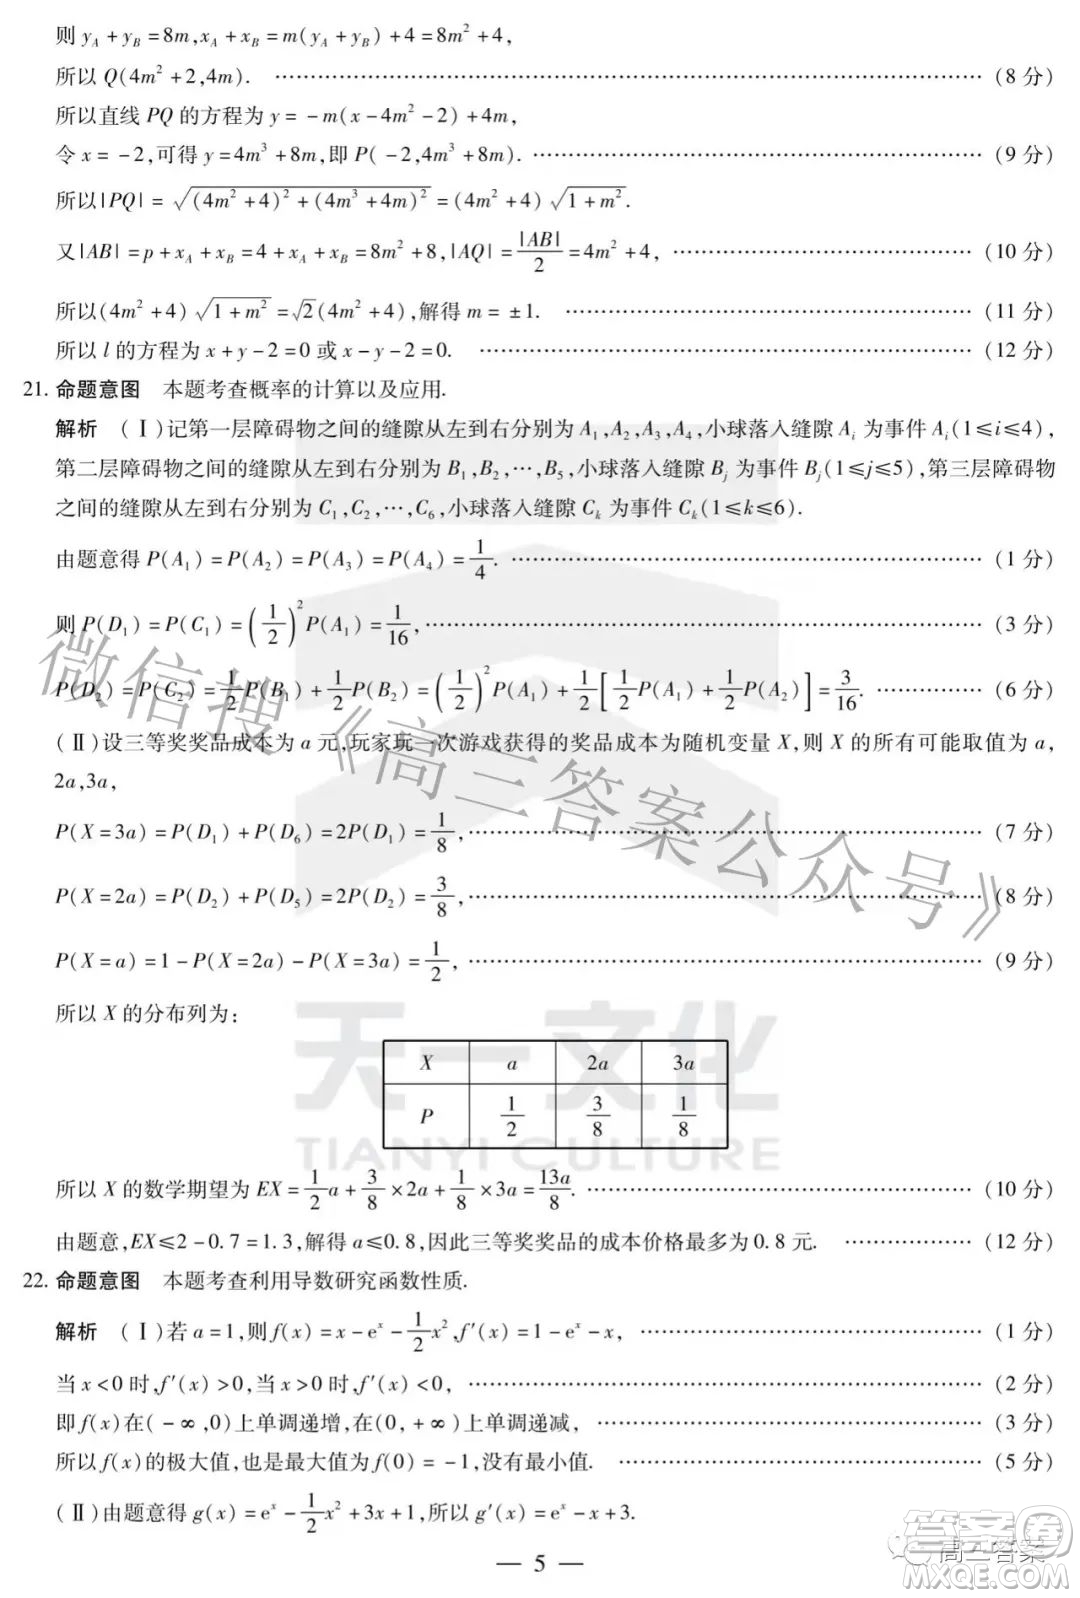 则 y_A + y_B = 8m, x_A + x_B = m(y_A + y_B) + 4 = 8m² + 4,
所以 Q(4m² + 2, 4m). ……(8 分)
所以直线 PQ 的方程为 y = -m(x - 4m² - 2) + 4m,
令 x = -2, 可得 y = 4m³ + 8m, 即 P(-2, 4m³ + 8m). ……(9 分)
所以|PQ| = √((4m² + 4)² + (4m³ + 4m)²) = (4m² + 4)√(1 + m²).
又|AB| = p + x_A + x_B = 4 + x_A + x_B = 8m² + 8, |AQ| = |AB|/2 = 4m² + 4, ……(10 分)
所以(4m² + 4)√(1 + m²) = √2(4m² + 4), 解得 m = ±1. ……(11 分)
所以 l 的方程为 x + y - 2 = 0 或 x - y - 2 = 0. ……(12 分)
21. 命题意图 本题考查概率的计算以及应用.
解析 (Ⅰ)记第一层障碍物之间的缝隙从左到右分别为 A₁, A₂, A₃, A₄, 小球落入缝隙 A_i 为事件 A_i(1≤i≤4),
第二层障碍物之间的缝隙从左到右分别为 B₁, B₂, …, B₅, 小球落入缝隙 B_j 为事件 B_j(1≤j≤5), 第三层障碍物
之间的缝隙从左到右分别为 C₁, C₂, …, C₆, 小球落入缝隙 C_k 为事件 C_k(1≤k≤6).
由题意得 P(A₁) = P(A₂) = P(A₃) = P(A₄) = 1/4. ……(1 分)
则 P(D₁) = P(C₁) = (1/2)²P(A₁) = 1/16, ……(3 分)
P(D₂) = P(C₂) = 1/2 P(B₁) + 1/2 P(B₂) = (1/2)²P(A₁) + 1/2[1/2 P(A₁) + 1/2 P(A₂)] = 3/16. ……(6 分)
(Ⅱ)设三等奖奖品成本为 a 元, 玩家玩一次游戏获得的奖品成本为随机变量 X, 则 X 的所有可能取值为 a,
2a, 3a,
P(X = 3a) = P(D₁) + P(D₆) = 2P(D₁) = 1/8, ……(7 分)
P(X = 2a) = P(D₂) + P(D₅) = 2P(D₂) = 3/8, ……(8 分)
P(X = a) = 1 - P(X = 2a) - P(X = 3a) = 1/2, ……(9 分)
所以 X 的分布列为:
X a 2a 3a
P 1/2 3/8 1/8
天一文化
TIANYI CULTURE
所以 X 的数学期望为 EX = 1/2 a + 3/8 × 2a + 1/8 × 3a = 13a/8. ……(10 分)
由题意, EX ≤ 2 - 0.7 = 1.3, 解得 a ≤ 0.8, 因此三等奖奖品的成本价格最多为 0.8 元. ……(12 分)
22. 命题意图 本题考查利用导数研究函数性质.
解析 (Ⅰ)若 a = 1, 则 f(x) = x - eˣ - 1/2 x², f′(x) = 1 - eˣ - x, ……(1 分)
当 x < 0 时, f′(x) > 0, 当 x > 0 时, f′(x) < 0, ……(2 分)
即 f(x) 在(-∞, 0)上单调递增, 在(0, +∞)上单调递减, ……(3 分)
所以 f(x) 的极大值, 也是最大值为 f(0) = -1, 没有最小值. ……(5 分)
(Ⅱ)由题意得 g(x) = eˣ - 1/2 x² + 3x + 1, 所以 g′(x) = eˣ - x + 3.
— 5 —
微信搜《高三答案公众号》
高三答案
答案圈
MXQE.COM